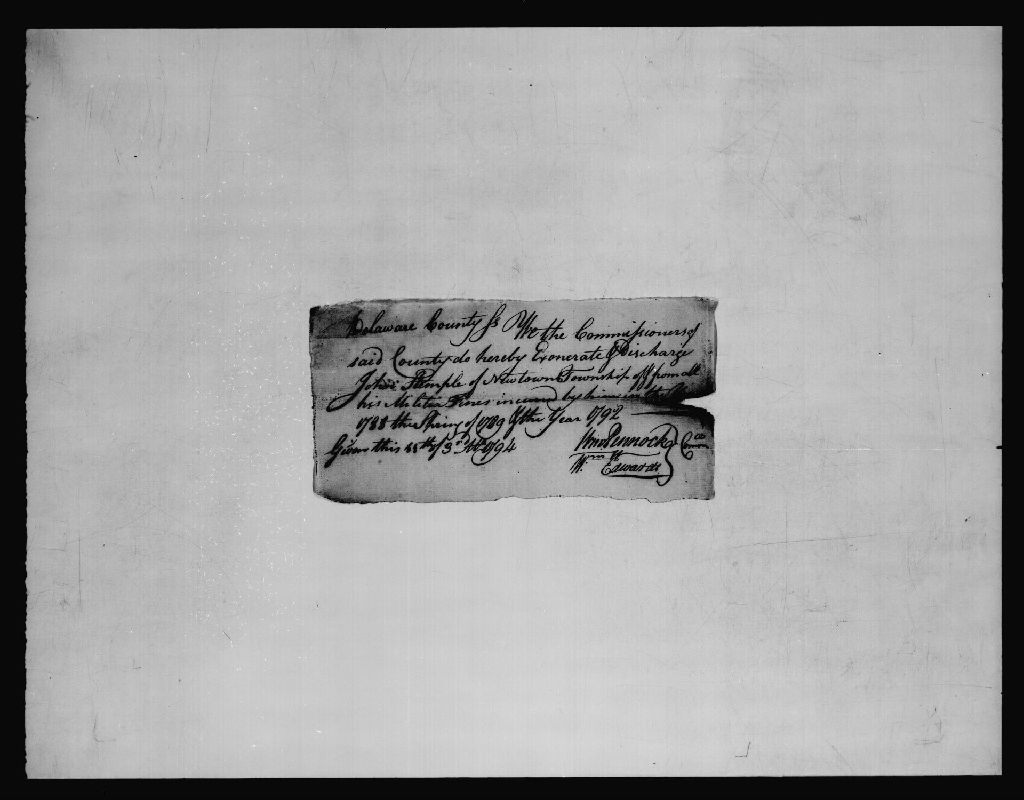 Delaware County Ss We the Commissioners of
said County do hereby Exonerate & Discharge
John Temple of Newtown Township off from all
his Militia Fines incurred by him in the
1788 the Spring of 1789 & the Year 1792
Given this 11th of 3d Mo 1794
Wm Pennock Comrs
Wm Edwards